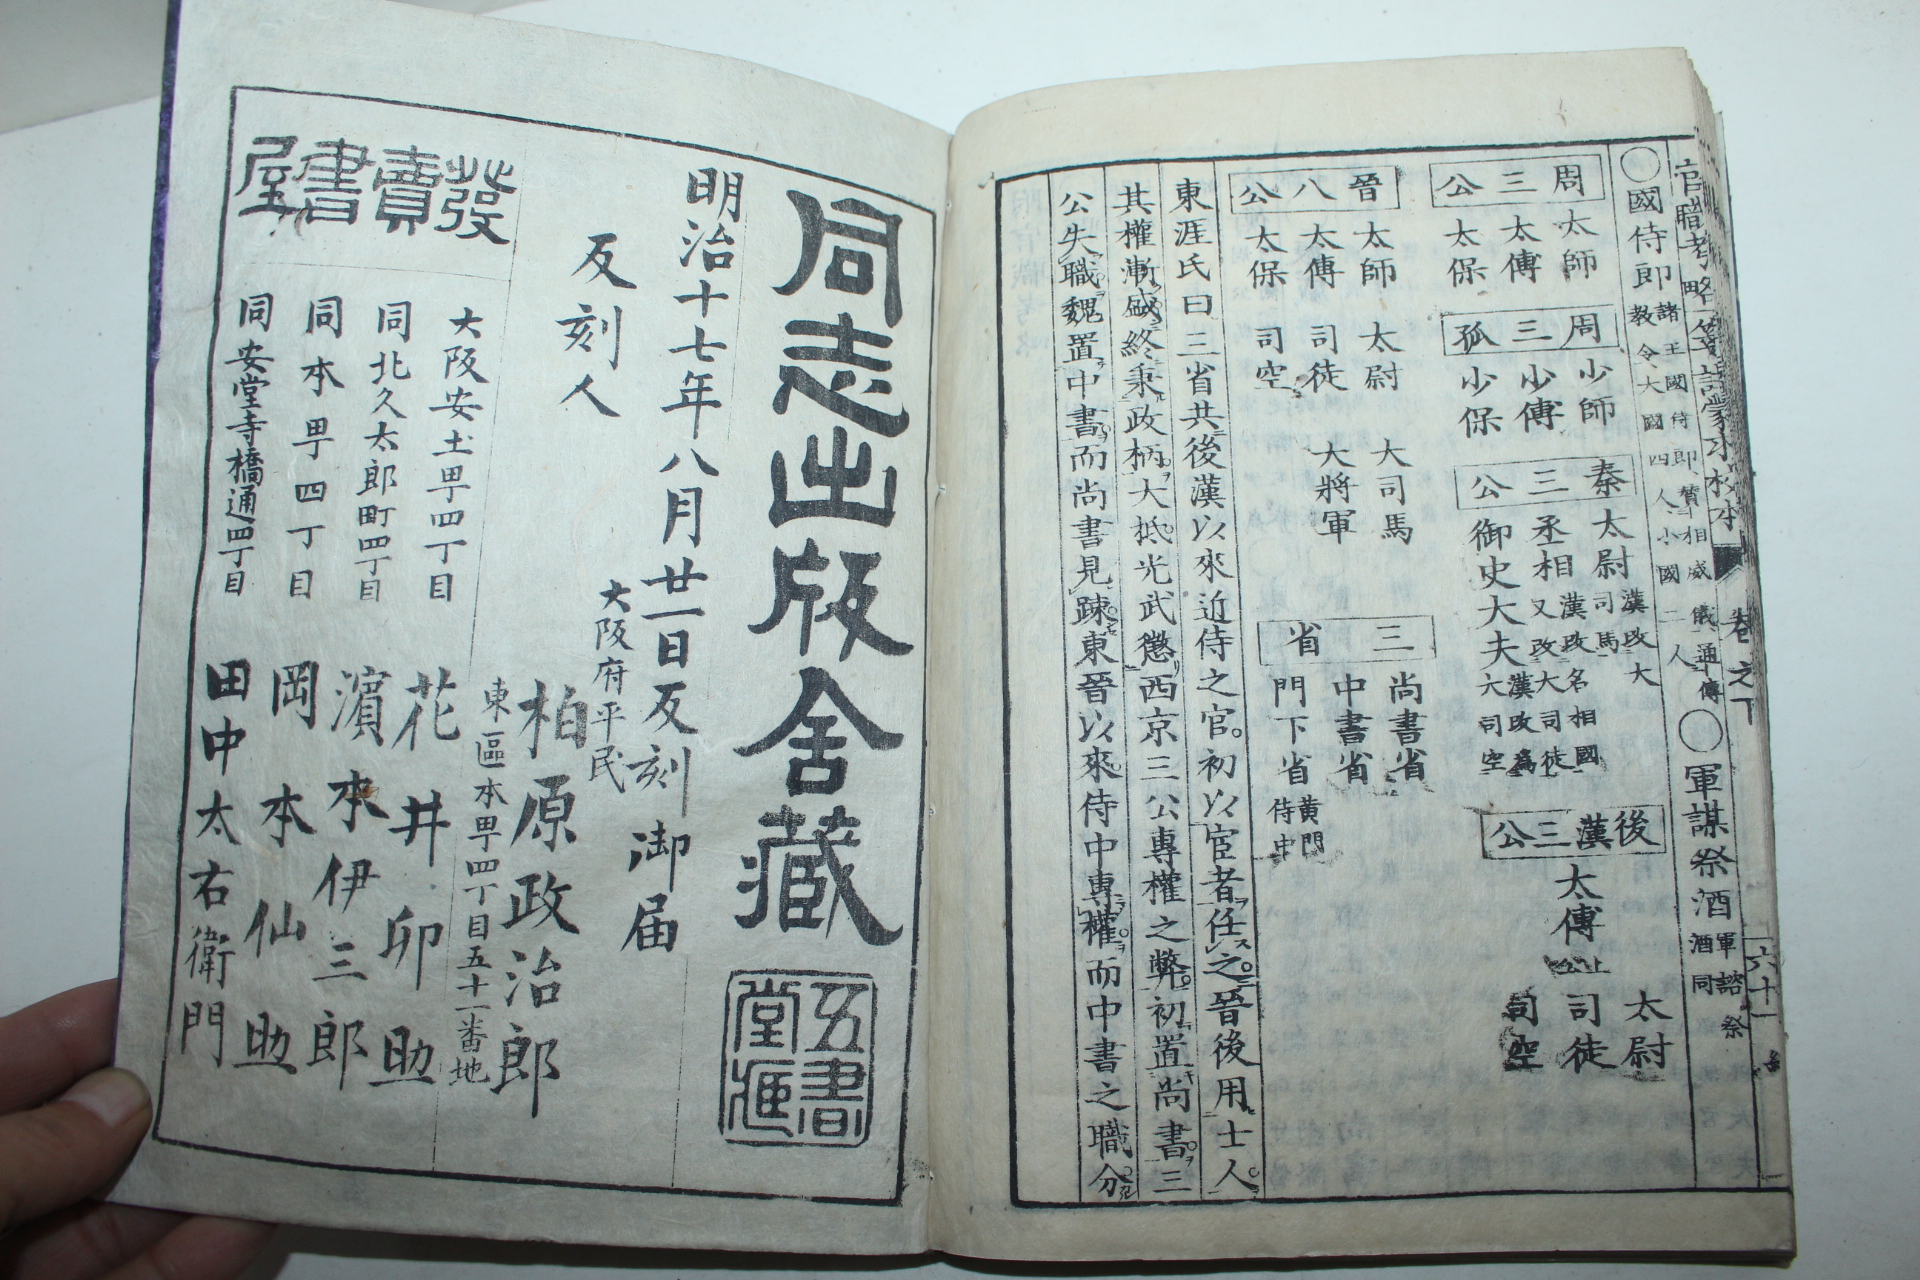 ○國侍郎 諸王國侍郎贊相威儀通傳
教令大國四人小國二人 ○軍謀祭酒 軍諮祭
酒同
周三公 太師 太傅 太保
周三孤 少師 少傅 少保
秦三公 太尉 漢改大
司馬 丞相 漢改名相國
又改大司徒 御史大夫 漢改為
大司空
後漢三公 太傅 上公 太尉 司徒 司空
晉八公 太師 太傅 太保 太尉 司徒 司空 大司馬 大將軍
三省 尚書省 中書省 門下省 黄門
侍中
東涯氏曰三省共後漢以來近侍之官初以宦者任之晉後用士人
其權漸盛終秉政柄大抵光武懲西京三公專權之弊初置尚書三
公失職魏置中書而尚書見踈東晉以來侍中專權而中書之職分
卷之下
六十一
同志出版舍藏
五書堂
明治十七年八月廿一日反刻御届
大阪府平民
反刻人 柏原政治郎
東區本甼四丁目五十一番地
發賣書屋
大阪安土甼四丁目 花井卯助
同北久太郎町四丁目 濱本伊三郎
同本甼四丁目 岡本仙助
同安堂寺橋通四丁目 田中太右衛門